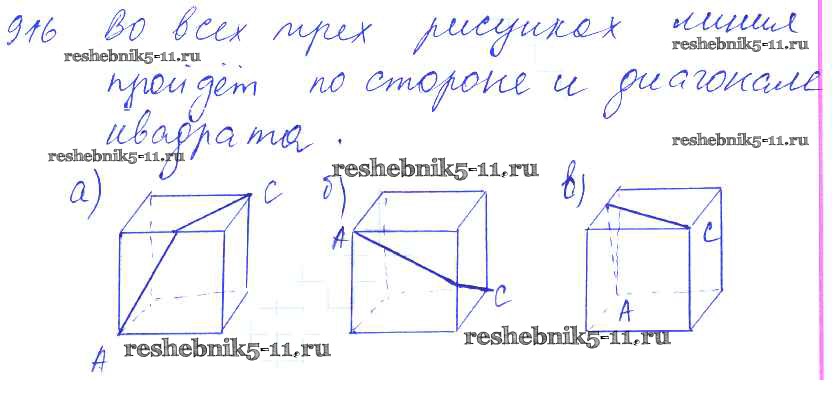 916 Во всех трех рисунках линия
reshebnik5-11.ru reshebnik5-11.ru
пройдёт по стороне и диагонале
квадрата.
reshebnik5-11.ru reshebnik5-11.ru
reshebnik5-11.ru
а) С б) в)
А С
С
А
А
reshebnik5-11.ru reshebnik5-11.ru